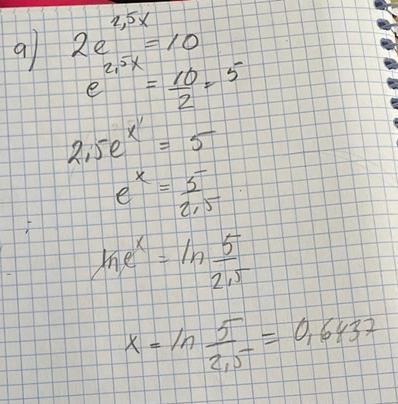 a) 2e^2,5x = 10
e^2,5x = 10/2 = 5
2,5e^x = 5
e^x = 5/2,5
ln e^x = ln 5/2,5
x = ln 5/2,5 = 0,6437